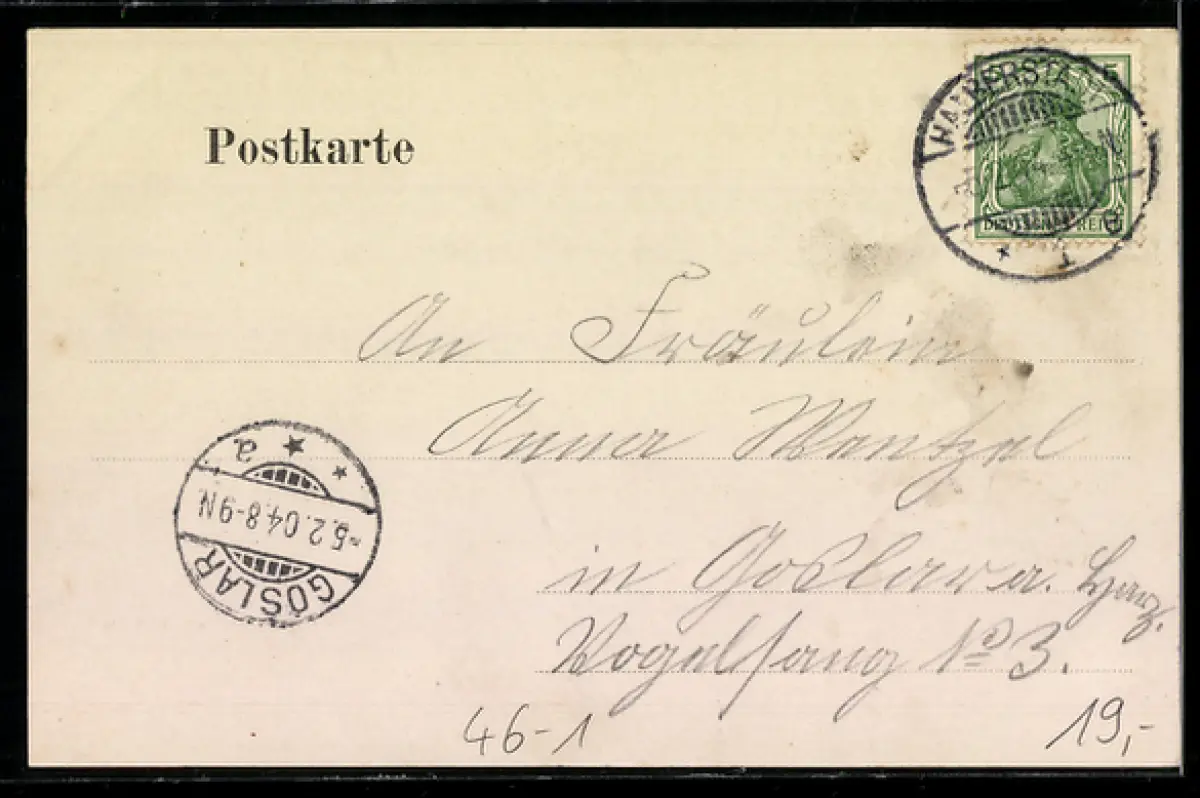 Postkarte
5
HALBERSTADT
DEUTSCHES REICH
* 1 e
An Fräulein
Anna Wentzel
in Goslar a. Harz.
Vogelsang No 3.
* * a
-5.2.04.8-9N
GOSLAR
46-1
19,-